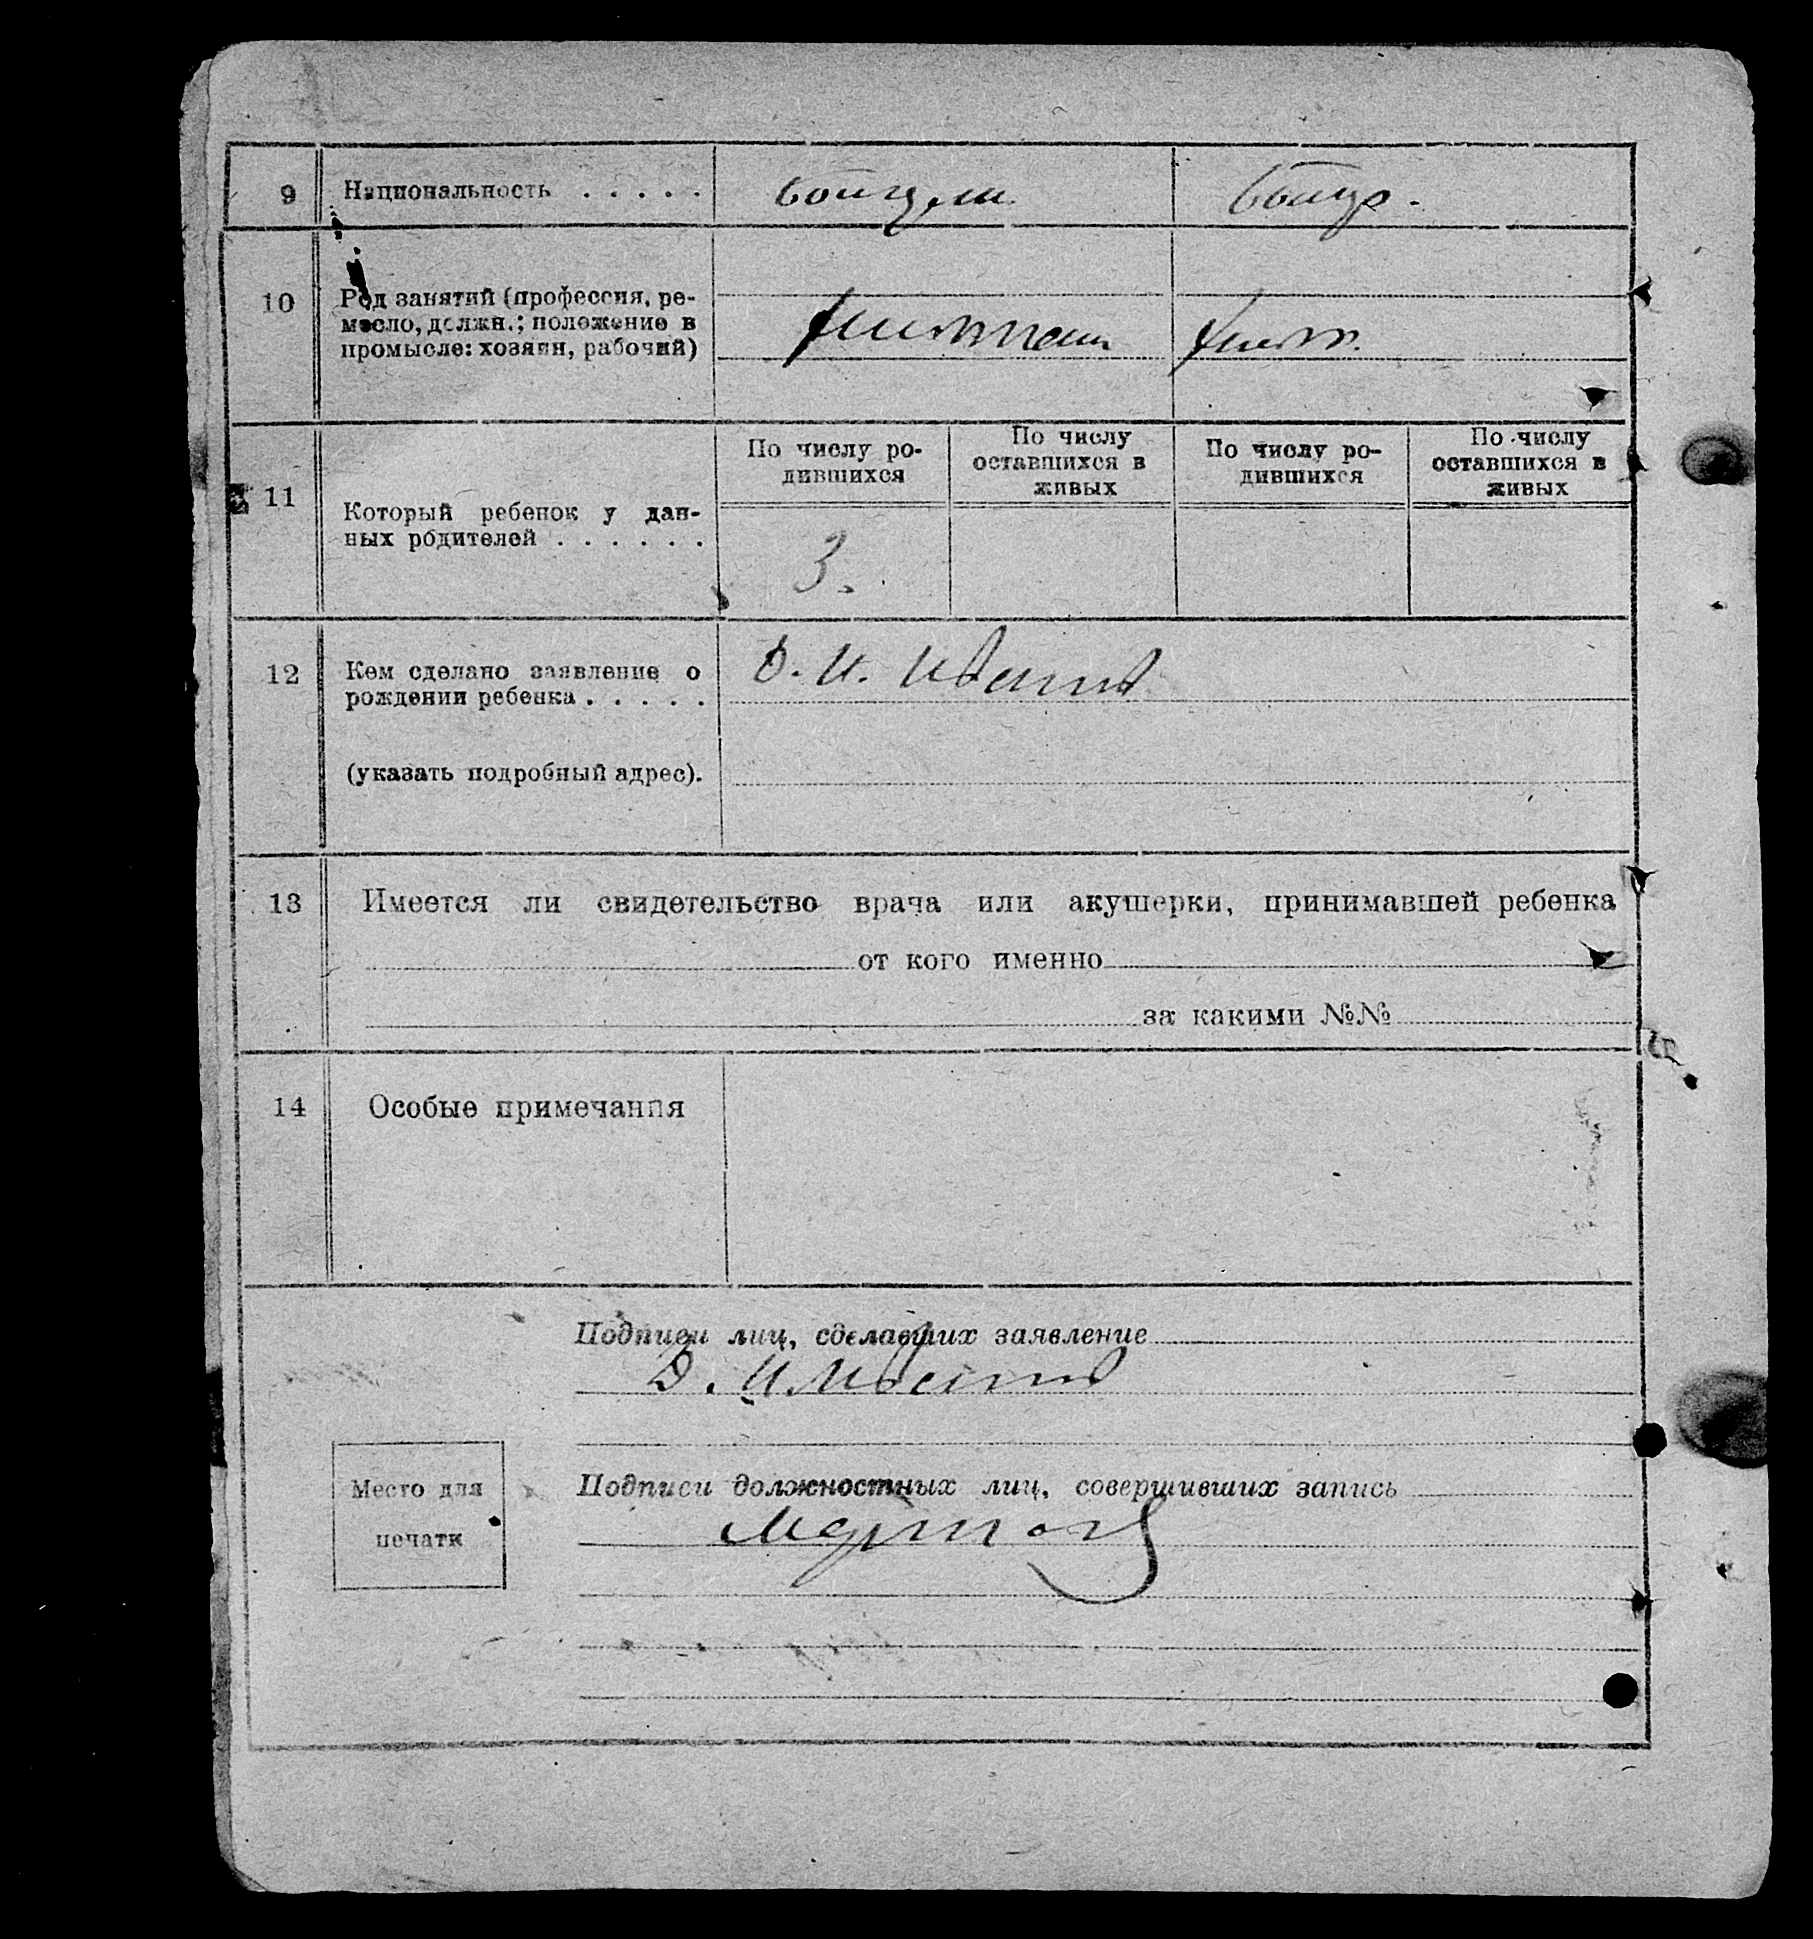 9 Национальность . . . . .
10 Род занятий (профессия, ре-
месло, должн.; положение в
промысле: хозяин, рабочий)
11 Который ребенок у дан-
ных родителей . . . . . .
По числу ро-
дившихся
По числу
оставшихся в
живых
По числу ро-
дившихся
По числу
оставшихся в
живых
3.
12 Кем сделано заявление о
рождении ребенка . . . . .
(указать подробный адрес).
13 Имеется ли свидетельство врача или акушерки, принимавшей ребенка
от кого именно
за какими №№
14 Особые примечания
Подписи лиц, сделавших заявление
Место для
печати
Подписи должностных лиц, совершивших запись